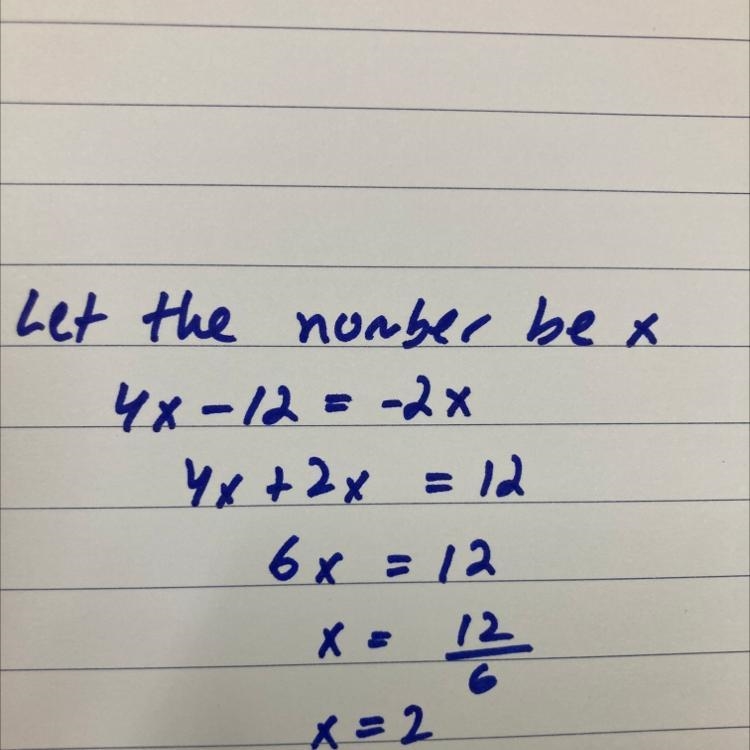 Let the number be x
4x - 12 = -2x
4x + 2x = 12
6x = 12
x = 12/6
x = 2